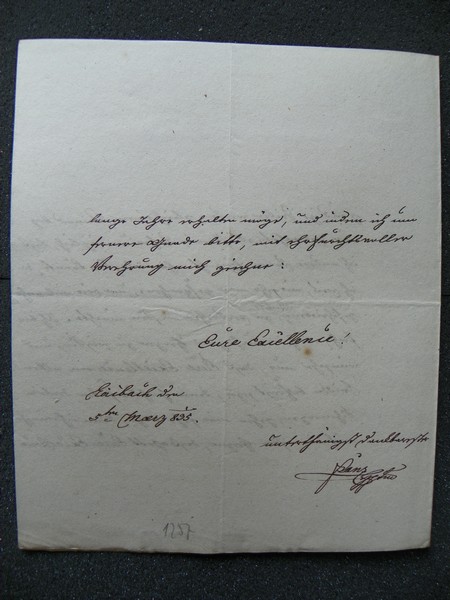 lange Jahre erhalten möge, und indem ich um
fernere Gnade bitte, mit ehrfurchtvoller
Verehrung mich zeichne:
Eure Excellenz!
Laibach den
5ten Maerz 835.
unterthänigst dankbarste
Franz
1257